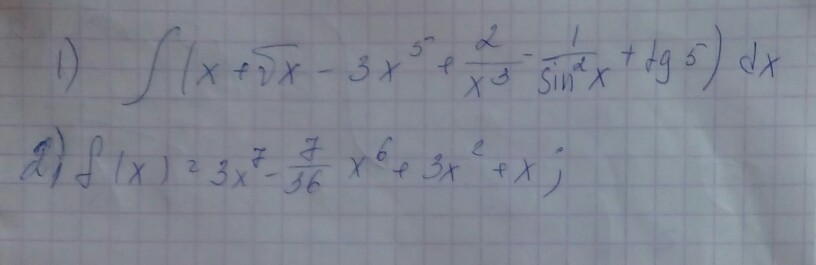 1) ∫(x + √x − 3x⁵ + 2/x³ − 1/sin²x + tg 5) dx
2) f(x) = 3x⁷ − 7/36 x⁶ + 3x² + x;